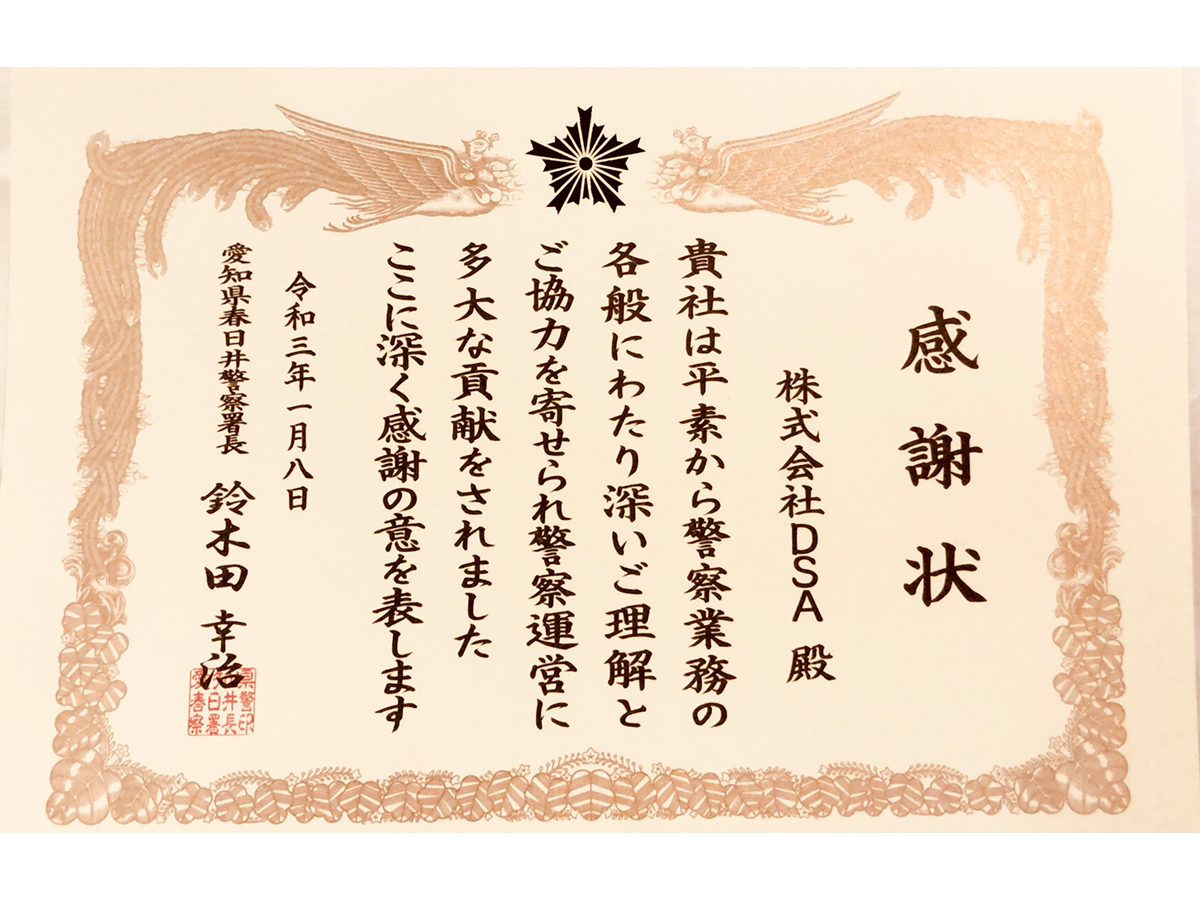 感謝状
株式会社DSA 殿
貴社は平素から警察業務の
各般にわたり深いご理解と
ご協力を寄せられ警察運営に
多大な貢献をされました
ここに深く感謝の意を表します
令和三年一月八日
愛知県春日井警察署長 鈴木田 幸治